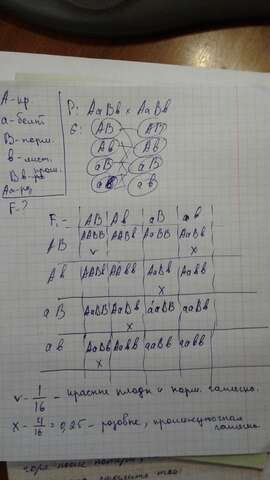 A - кр
a - белт
B - норм.
b - лист.
Bb - пром.
Aa - роз
F - ?
P: AaBb × AaBb
G: AB AB
Ab Ab
aB aB
ab ab
F₁ - AB Ab aB ab
AB AABB AABb AaBB AaBb
v x
Ab AABb AAbb AaBb Aabb
x
aB AaBB AaBb aaBB aaBb
x
ab AaBb Aabb aaBb aabb
x
v - 1/16 - красные плоды и норм. чашечка.
x - 4/16 = 0,25 - розовые, промежуточная
чашечка.